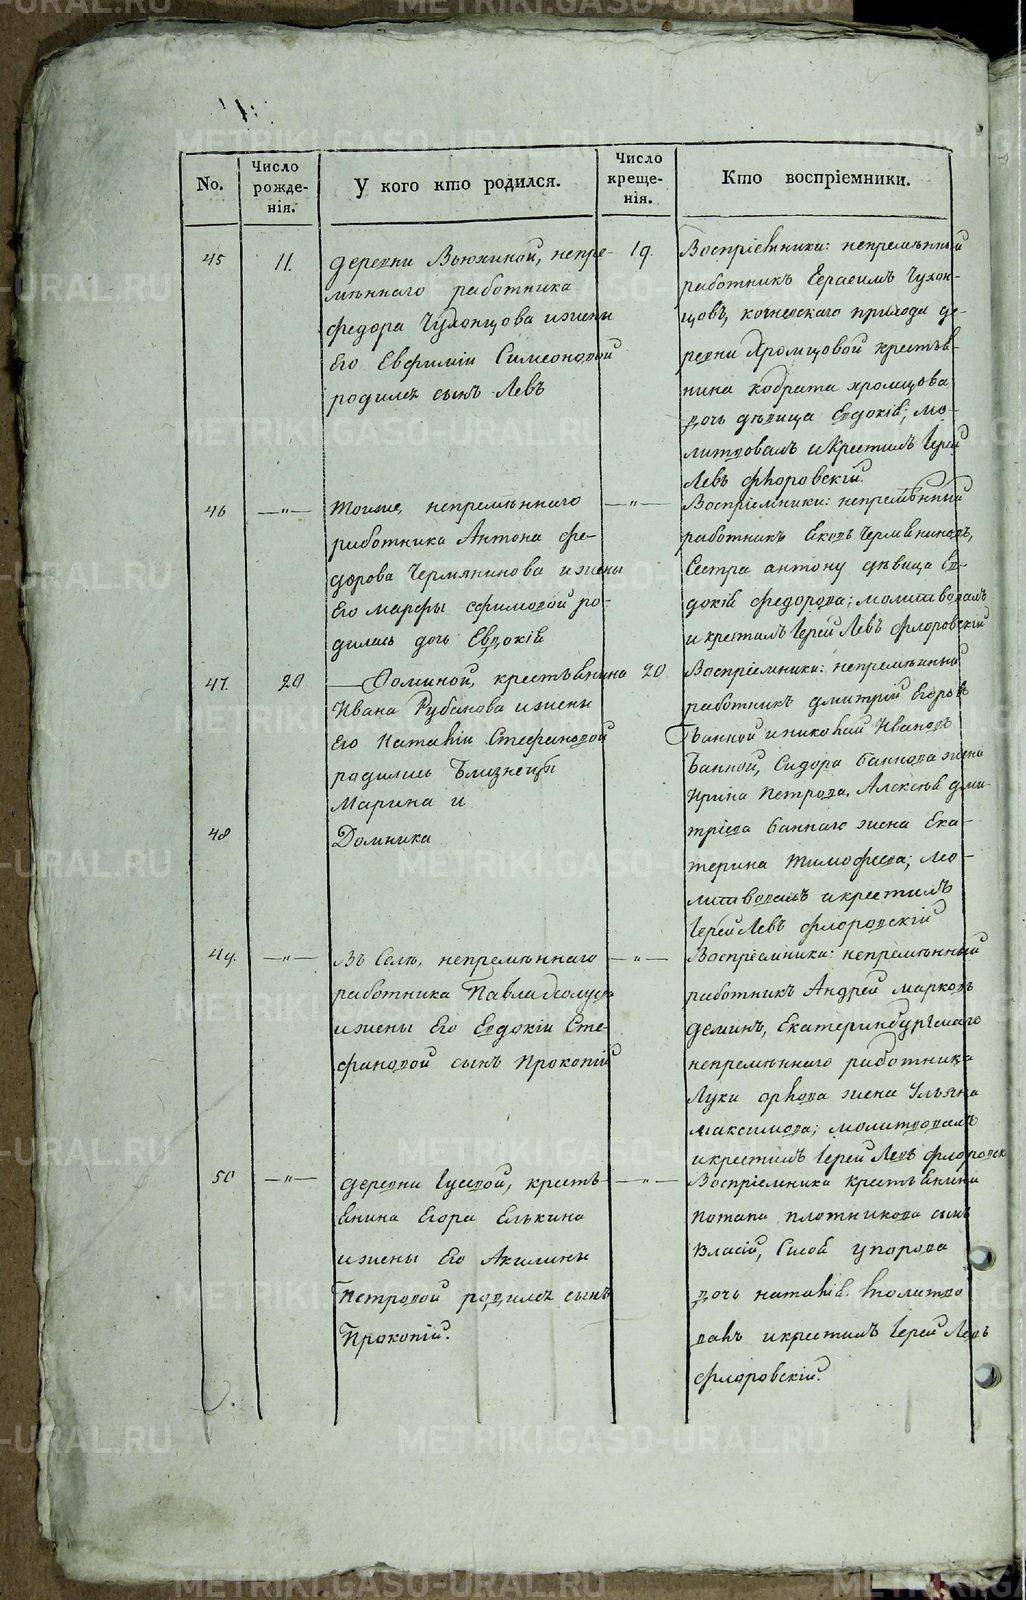 No.
Число рожде-нія.
У кого кто родился.
Число креще-нія.
Кто воспріемники.
45
11.
деревни Вьюхиной, непре-
мѣннаго работника
Федора Чухонцова и жены
его Евфиміи Симеоновой
родился сынъ Левъ
19.
Воспріемники: непремѣнный
работникъ Герасимъ Чухон-
цовъ, приход де-
ревни Хромцовой крестья-
нина Кодрата Хромцова
дочь дѣвица Евдокія; мо-
литвовалъ и крестилъ Іерей
Левъ Флоровскій.
46
—„—
непремѣннаго
работника Антона Фе-
дорова Чермянинова и жены
его Марфы Ефимовой ро-
дилась дочь Евдокія
—„—
Воспріемники: непремѣнный
работникъ Яковъ
Сестра Антону дѣвица Ев-
докія Федорова; молитвовалъ
и крестилъ Іерей Левъ Флоровскій
47.
20
крестьянина
Ивана Рубанова и жены
его Наталіи Стефановой
родились близнецы
Марина и
20
Воспріемники: непремѣнный
работникъ Дмитрій Егоровъ
Банной и Николай Ивановъ
Банной, Сидора Баннова жена
Ирина Петрова. Алексѣя Дми-
48
Домника
тріева Баннаго жена Ека-
терина Тимофеева; мо-
литвовалъ и крестилъ
Іерей Левъ Флоровскій
49.
—„—
Въ Селѣ, непремѣннаго
работника Павла
и жены его Евдокіи Сте-
фановой сынъ Прокопій
—„—
Воспріемники: непремѣнный
работникъ Андрей Марковъ
Деминъ, Екатеринбургскаго
непремѣннаго работника
Луки Орлова жена Ульяна
Максимова; молитвовалъ
и крестилъ Іерей Левъ Флоровск
50
—„—
деревни Гусевой, кресть-
янина Егора Елькина
и жены его Акилины
Петровой родился сынъ
Прокопій.
—„—
Воспріемники крестьянина
Потапа Плотникова сынъ
Власій, Упорова
дочь Наталія. Молитво
валъ и крестилъ Іерей Левъ
Флоровскій.
METRIKI.GASO-URAL.RU